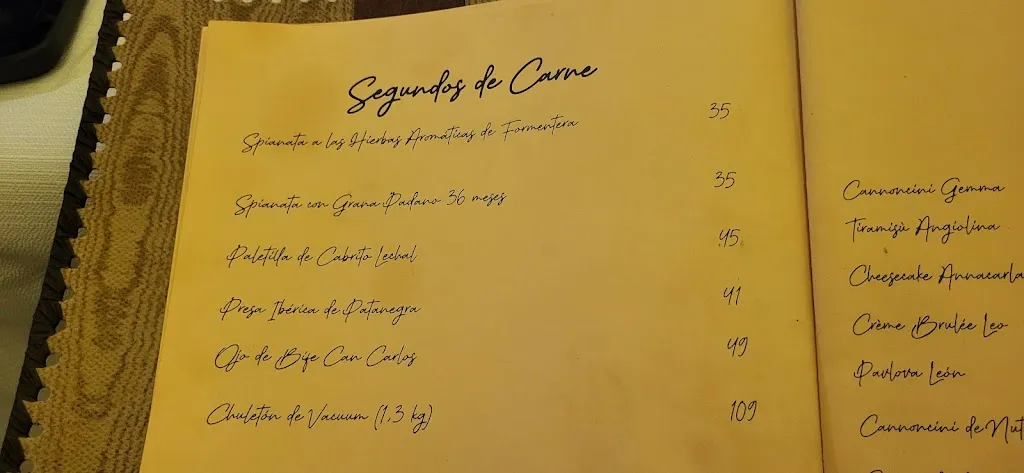 Segundos de Carne
Spianata a las Hierbas Aromáticas de Formentera 35
Spianata con Grana Padano 36 meses 35
Paletilla de Cabrito Lechal 45
Presa Ibérica de Patanegra 41
Ojo de Bife Can Carlos 49
Chuletón de Vacuum (1,3 kg) 109
Cannoncini Gemma
Tiramisù Angiolina
Cheesecake Annacarla
Crème Brulée Leo
Pavlova León
Cannoncini de Nut